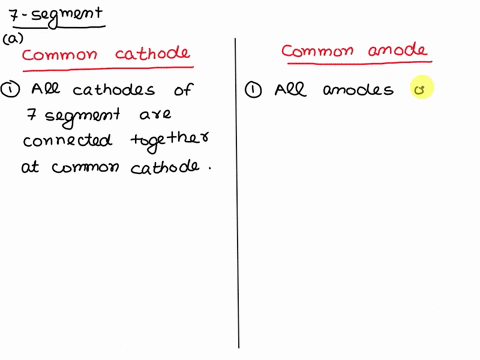 7-segment
(a)
Common cathode
① All cathodes of
7 segment are
connected together
at common cathode.
Common anode
① All anodes o